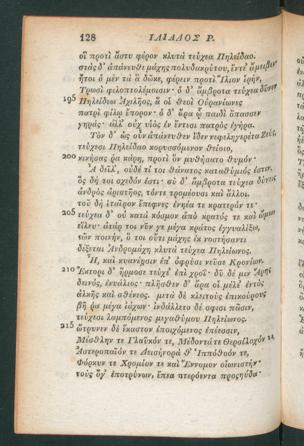 128 ΙΛΙΑΔΟΣ Ρ.
οἳ προτὶ ἄστυ φέρον κλυτὰ τεύχεα Πηλείδαο.
στὰς δ' ἀπάνευθε μάχης πολυδακρύτου, ἔντε' ἄμειβεν·
ἤτοι ὁ μὲν τὰ ἃ δῶκε, φέρειν προτὶ Ἴλιον ἱρήν,
Τρωσὶ φιλοπτολέμοισιν· ὁ δ' ἄμβροτα τεύχεα δῦνεν
195 Πηλείδεω Ἀχιλῆος, ἅ οἱ θεοὶ Οὐρανίωνες
πατρὶ φίλῳ ἔπορον· ὁ δ' ἄρα ᾧ παιδὶ ὄπασσεν
γηράς· ἀλλ' οὐχ υἱὸς ἐν ἔντεσι πατρὸς ἐγήρα.
Τὸν δ' ὡς οὖν ἀπάνευθεν ἴδεν νεφεληγερέτα Ζεύς,
τεύχεσι Πηλείδαο κορυσσόμενον θείοιο,
200 κινήσας ῥα κάρη, προτὶ ὃν μυθήσατο θυμόν·
Ἆ δείλ', οὐδέ τί τοι θάνατος καταθύμιός ἐστιν,
ὃς δή τοι σχεδόν ἐστι· σὺ δ' ἄμβροτα τεύχεα δύνεις
ἀνδρὸς ἀριστῆος, τόντε τρομέουσι καὶ ἄλλοι.
τοῦ δὴ ἑταῖρον ἔπεφνες ἐνηέα τε κρατερόν τε·
205 τεύχεα δ' οὐ κατὰ κόσμον ἀπὸ κρατός τε καὶ ὤμων
εἵλευ· ἀτάρ τοι νῦν γε μέγα κράτος ἐγγυαλίξω,
τῶν ποινήν, ὅ τοι οὔτι μάχης ἐκ νοστήσαντι
δέξεται Ἀνδρομάχη κλυτὰ τεύχεα Πηλείωνος.
Ἦ, καὶ κυανέῃσιν ἐπ' ὀφρύσι νεῦσε Κρονίων.
210 Ἕκτορι δ' ἥρμοσε τεύχε' ἐπὶ χροΐ· δῦ δέ μιν Ἄρης
δεινός, ἐνυάλιος· πλῆσθεν δ' ἄρα οἱ μέλε' ἐντὸς
ἀλκῆς καὶ σθένεος. μετὰ δὲ κλειτοὺς ἐπικούρους
βῆ ῥα μέγα ἰάχων· ἰνδάλλετο δέ σφισι πᾶσιν,
τεύχεσι λαμπόμενος μεγαθύμου Πηλείωνος.
215 ὤτρυνεν δὲ ἕκαστον ἐποιχόμενος ἐπέεσσιν,
Μέσθλην τε Γλαῦκόν τε, Μέδοντά τε Θερσίλοχόν τε,
Ἀστεροπαῖόν τε Δεισήνορά θ' Ἱππόθοόν τε,
Φόρκυν τε Χρομίον τε καὶ Ἔννομον οἰωνιστήν·
τοὺς ὅγ' ἐποτρύνων, ἔπεα πτερόεντα προσηύδα·